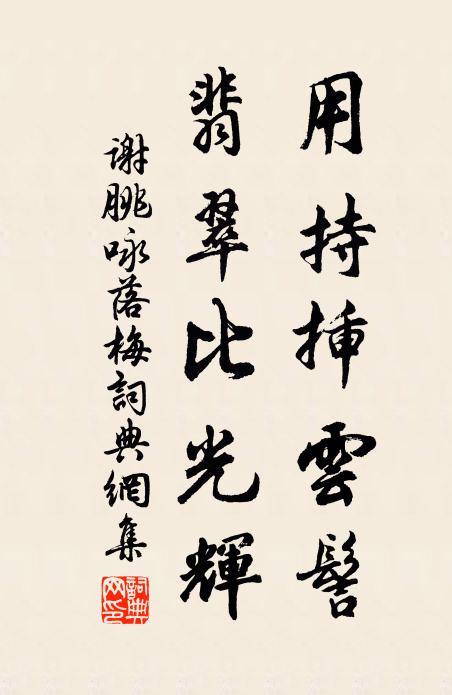 用持揷雲髻
翡翠比光輝
謝朓咏落梅詞典網集
詞典網印